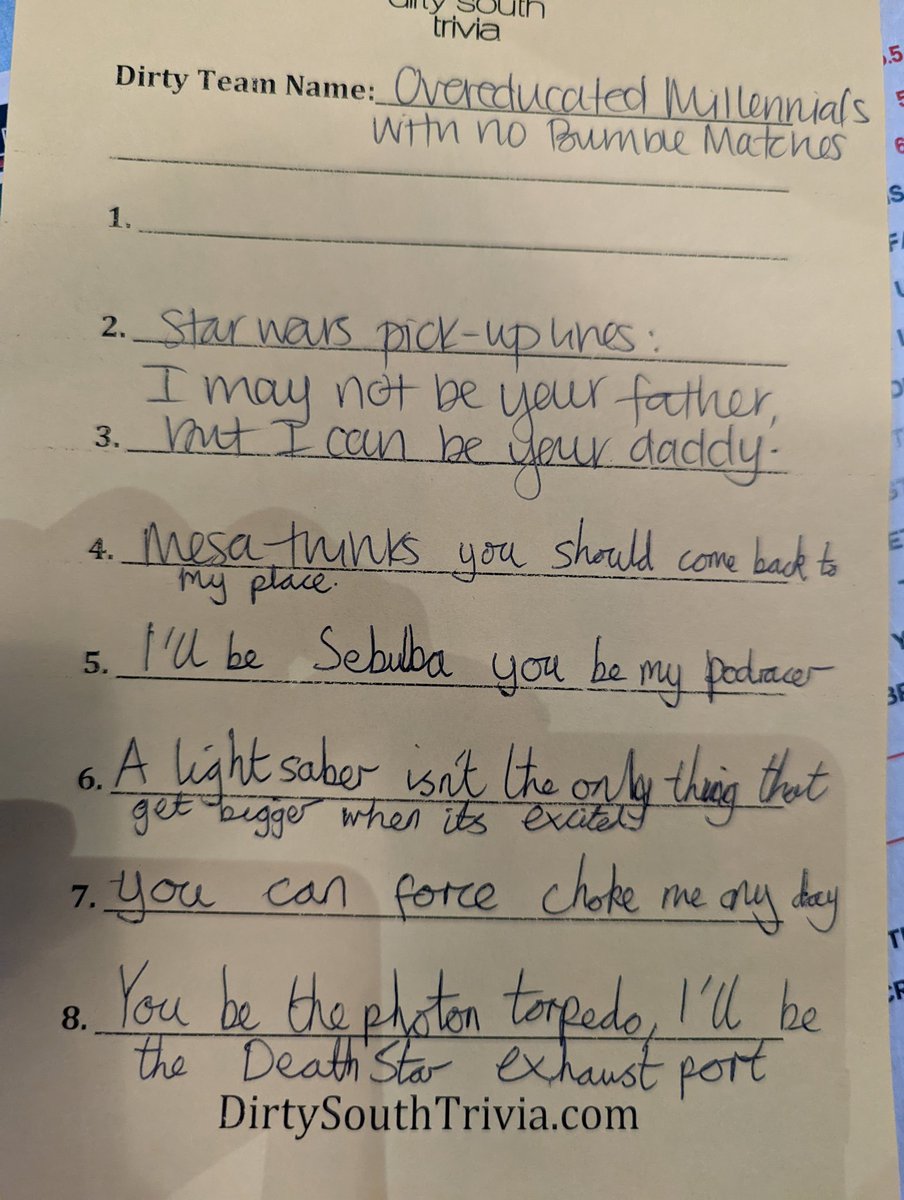 dirty south
trivia
Dirty Team Name: Overeducated Millennials
with no Bumble Matches
1.
2. Star wars pick-up lines:
I may not be your father,
3. but I can be your daddy.
4. Mesa thinks you should come back to
my place.
5. I'll be Sebulba you be my podracer
6. A lightsaber isn't the only thing that
get bigger when its excited
7. you can force choke me any day
8. You be the photon torpedo, I'll be
the Death Star exhaust port
DirtySouthTrivia.com